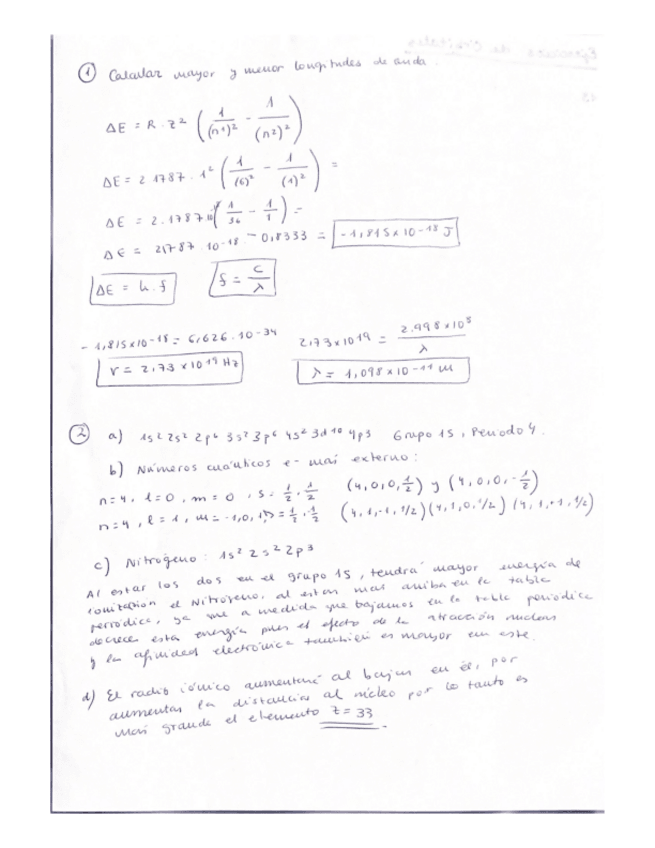 ① Calcular mayor y menor longitudes de onda.
ΔE = R · Z² (1/(n1)² - 1/(n2)²)
ΔE = 2 1787 · 1² (1/(6)² - 1/(1)²) =
ΔE = 2.1787 (1/36 - 1/1) =
ΔE = 2,1787 · 10-18 · -0,8333 = -1,815×10-18 J
ΔE = h.f f = c/λ
-1,815×10-18 = 6,626.10-34 2,73×10¹⁹ = 2.998×10⁸/λ
r = 2,73×10¹⁹ Hz λ = 1,098×10-11 m
② a) 1s² 2s² 2p⁶ 3s² 3p⁶ 4s² 3d10 4p3 Grupo 15, Periodo 4.
b) Números cuánticos e- mas externo:
n=4, l=0, m=0, s=1/2, 1/2 (4,0,0,1/2) y (4,0,0,-1/2)
n=4, l=1, m=-1,0,1, s=1/2, 1/2 (4,1,-1,1/2)(4,1,0,1/2)(4,1,+1,1/2)
c) Nitrógeno: 1s² 2s² 2p³
Al estar los dos en el grupo 15, tendrá mayor energía de
ionitacion el Nitrógeno, al estar mas arriba en la table
periódica, ya que a medida que bajamos en la table periodica
decrece esta energía pues el efecto de la atracción nuclear
y la afinidad electrónica también es mayor em este.
d) El radio iónico aumentará al bajar en él, por
aumentar la distancia al núcleo por lo tanto es
mas grande el elemento Z=33